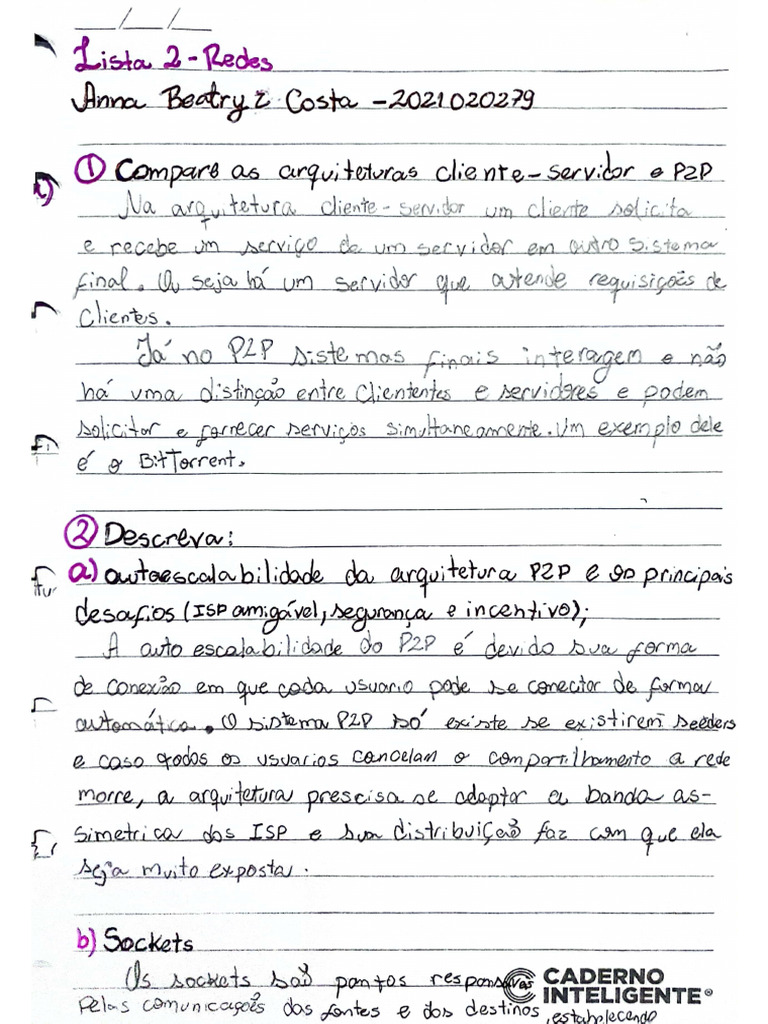 __/__/__
Lista 2 - Redes
Anna Beatryz Costa - 2021020279
① Compare as arquiteturas cliente-servidor e P2P
Na arquitetura cliente-servidor um cliente solicita
e recebe um serviço de um servidor em outro sistema
final. Ou seja há um servidor que atende requisições de
clientes.
Já no P2P sistemas finais interagem e não
há uma distinção entre Cliententes e servidores e podem
solicitar e fornecer serviços simultaneamente. Um exemplo dele
é o BitTorrent.
② Descreva:
a) autoescalabilidade da arquitetura P2P e os principais
desafios (ISP amigável, segurança e incentivo);
A auto escalabilidade do P2P é devido sua forma
de conexão em que cada usuario pode se conectar de forma
automática. O sistema P2P só existe se existirem seeders
e caso todos os usuarios cancelam o compartilhamento a rede
morre, a arquitetura prescisa se adaptar a banda as-
simetrica dos ISP e sua distribuição faz com que ela
seja muito exposta.
b) Sockets
Os sockets são pontos responsaves
pelas comunicações das fontes e dos destinos, estabelecendo
CADERNO
INTELIGENTE®